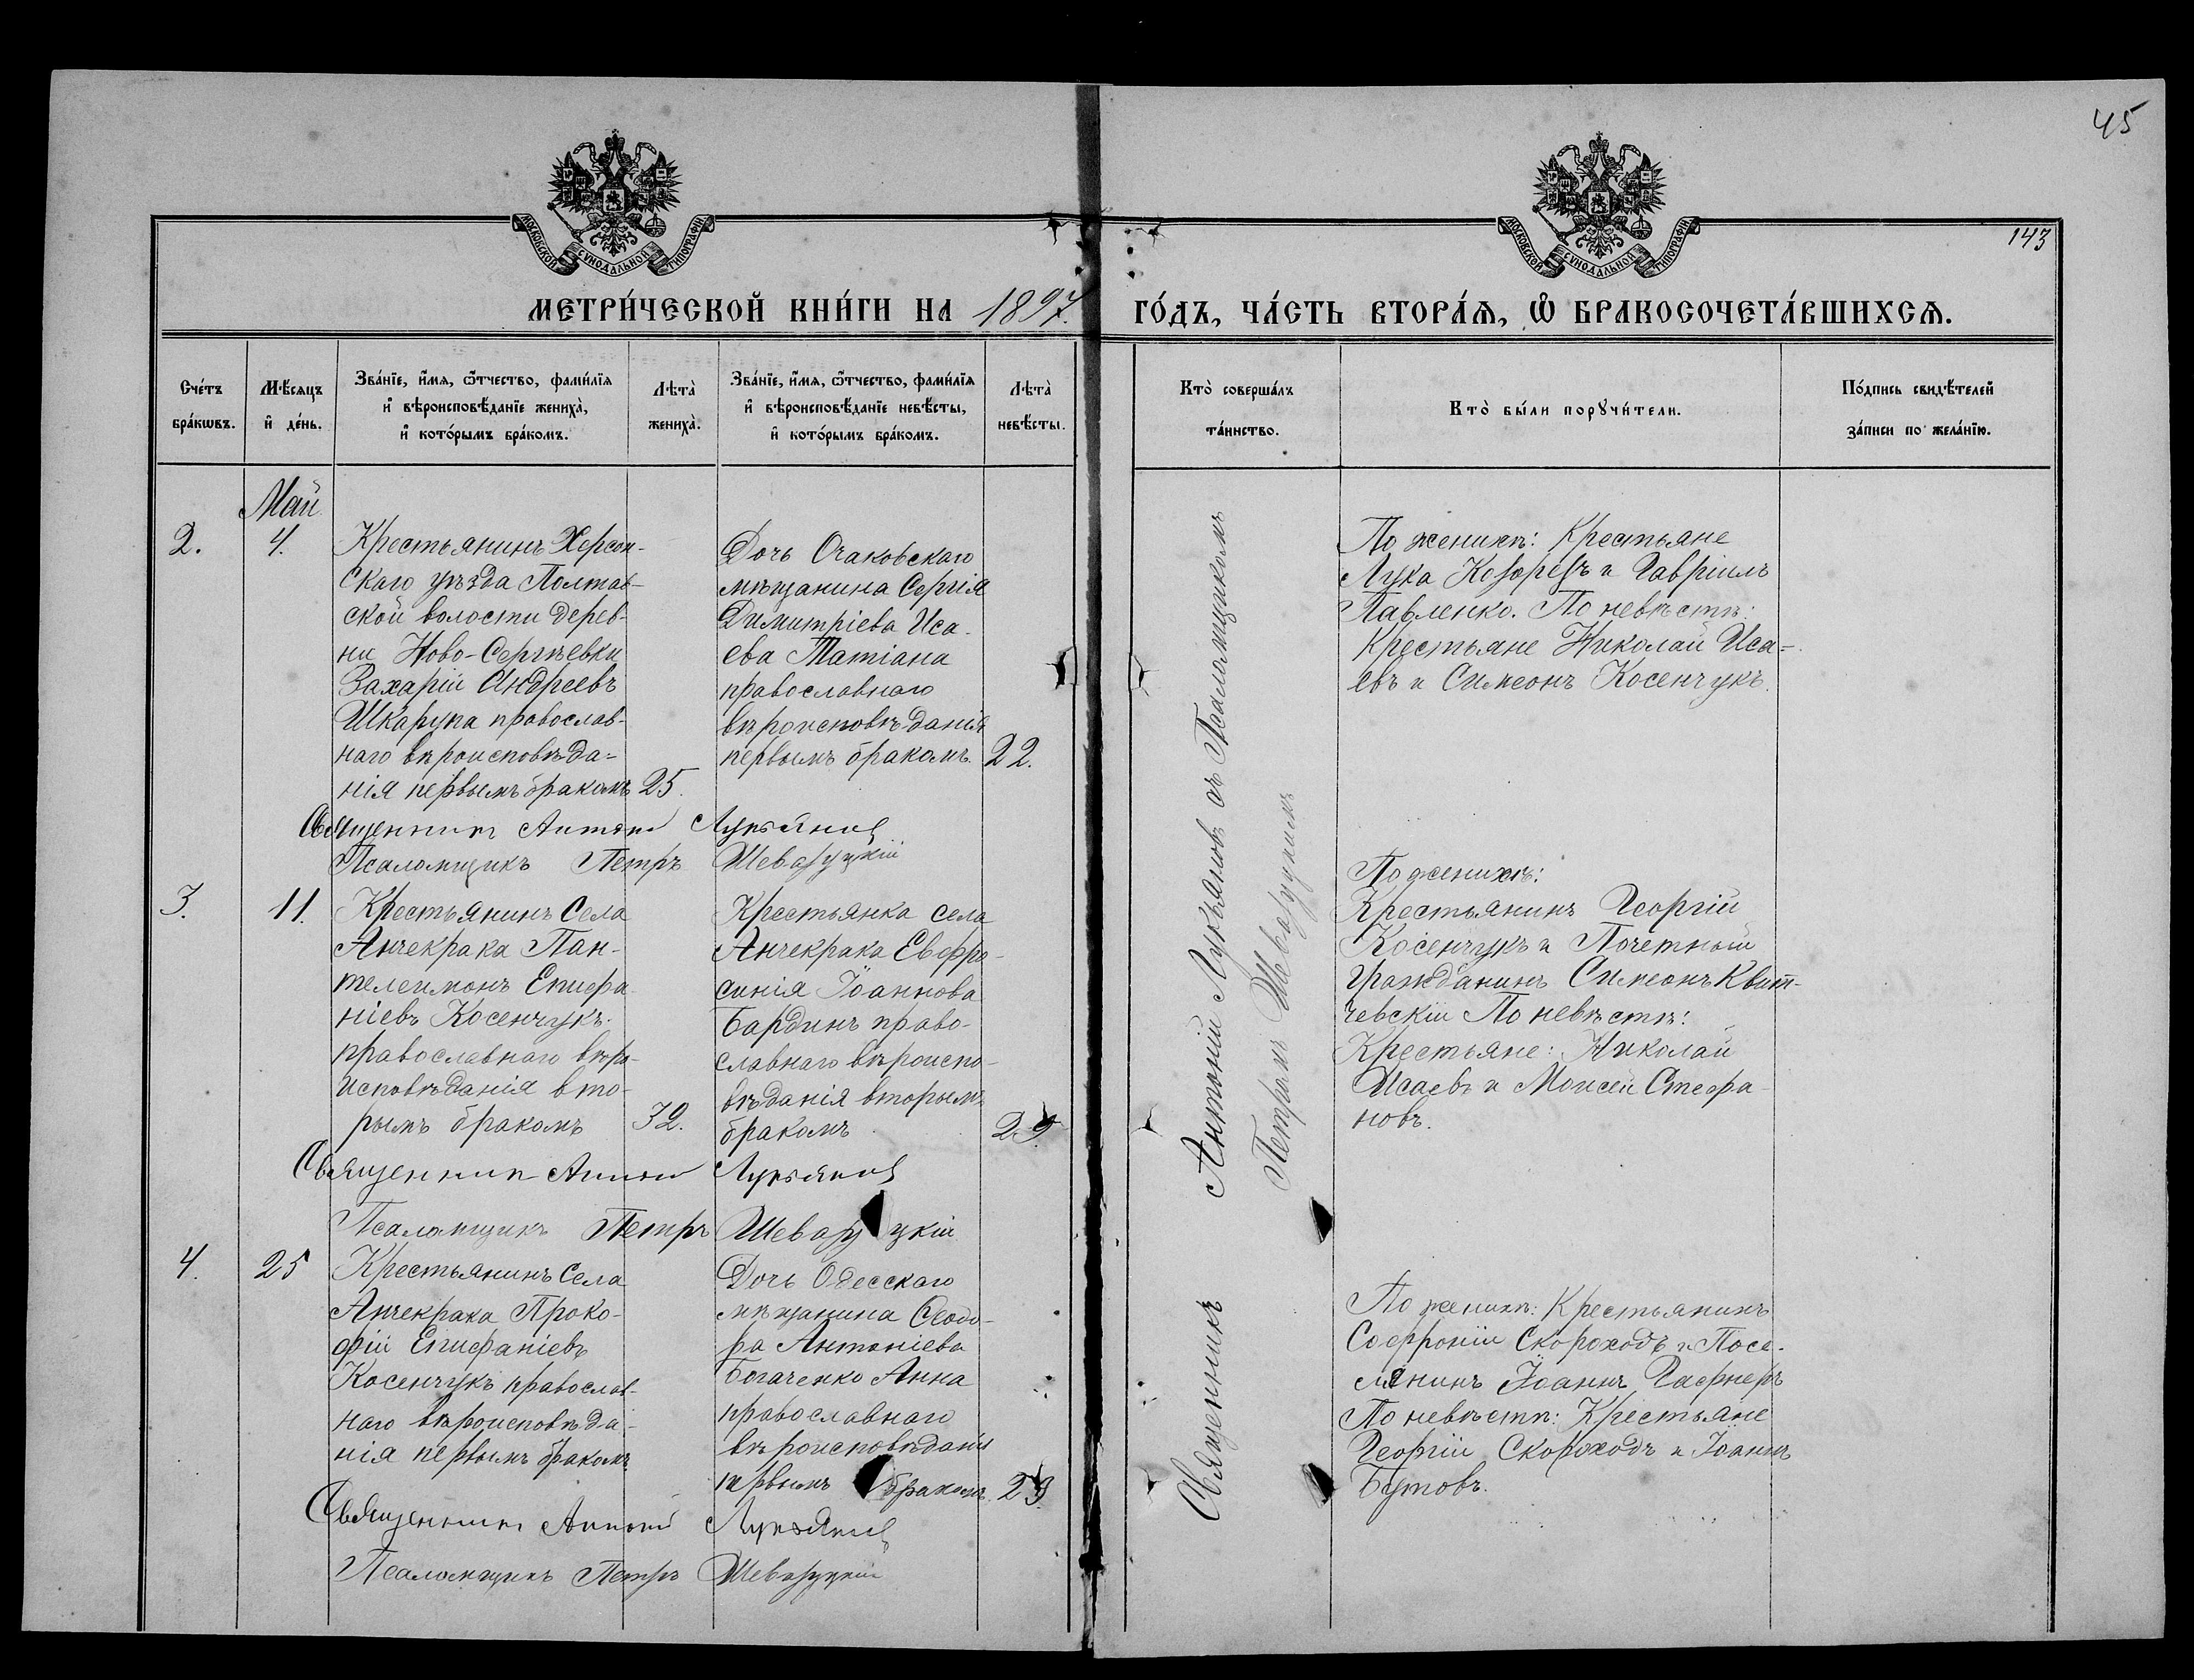 45
143
МОСКОВСКОЙ СѴНОДАЛЬНОЙ ТИПОГРАФІИ
МОСКОВСКОЙ СѴНОДАЛЬНОЙ ТИПОГРАФІИ
МЕТРИ́ЧЕСКОЙ КНИ́ГИ НА 1897. ГО́ДЪ, ЧА́СТЬ ВТОРА́Ѧ, Ѽ БРАКОСОЧЕТА́ВШИХСѦ.
Сче́тъ
бра́кѡвъ.
Мѣ́сяцъ
и҆ де́нь.
Зва́нїе, и҆́мѧ, ѻ҆́тчество, фами́лїѧ
и҆ вѣроисповѣ́данїе жениха̀,
и҆ кото́рымъ бра́комъ.
Лѣта̀
жениха̀.
Зва́нїе, и҆́мѧ, ѻ҆́тчество, фами́лїѧ
и҆ вѣроисповѣ́данїе невѣ́сты,
и҆ кото́рымъ бра́комъ.
Лѣта̀
невѣ́сты.
Кто̀ соверша́лъ
та́инство.
Кто̀ бы́ли порꙋчи́тели.
По́дпись свидѣ́телей
за́писи по жела́нїю.
Май
2.
4.
Крестьянинъ Херсон-
скаго уѣзда Полтав-
ской волости дерев-
ни Ново-Сергѣевки
Захарій Андреевъ
Шкарупа православ-
наго вѣроисповѣда-
нія первымъ бракомъ
25.
Дочь Очаковскаго
мѣщанина Сергія
Димитріева Иса-
ева Татіана
православнаго
вѣроисповѣданія
первымъ бракомъ.
22.
Священникъ Антоній Лукьяновъ
Псаломщикъ Петръ
По женихѣ: Крестьяне
Лука Козорезъ и Гавріилъ
Павленко. По невѣстѣ:
Крестьяне Николай Иса-
евъ и Симеонъ Косенчукъ.
3.
11.
Крестьянинъ Села
Анчекрака Пан-
телеимонъ Епифа-
ніевъ Косенчукъ.
православнаго вѣро-
исповѣданія вто-
рымъ бракомъ
32.
Крестьянка села
Анчекрака Евфро-
синія Іоаннова
Бардинъ право-
славнаго вѣроиспо-
вѣданія вторымъ
бракомъ
29.
Священникъ Антоній Лукьяновъ
Псаломщикъ Петръ
По женихѣ:
Крестьянинъ Георгій
Косенчукъ и Почетный
Гражданинъ Симеонъ Квит-
чевскій По невѣстѣ:
Крестьяне: Николай
Исаевъ и Моисей Стефа-
новъ.
4.
25
Крестьянинъ Села
Анчекрака Проко-
фій Епифаніевъ
Косенчукъ православ-
наго вѣроисповѣда-
нія первымъ бракомъ
Дочь Одесскаго
мѣщанина Ѳеодо-
ра Антоніева
Богаченко Анна
православнаго
вѣроисповѣданія
первымъ бракомъ.
23.
Священникъ Антоній Лукьяновъ
Псаломщикъ Петръ
По женихѣ: Крестьянинъ
Софроній Скороходъ и Посе-
лянинъ Іоаннъ Гафнеръ
По невѣстѣ: Крестьяне
Георгій Скороходъ и Іоаннъ
Бутовъ.
Священникъ Антоній Лукьяновъ съ Псаломщикомъ
Петромъ